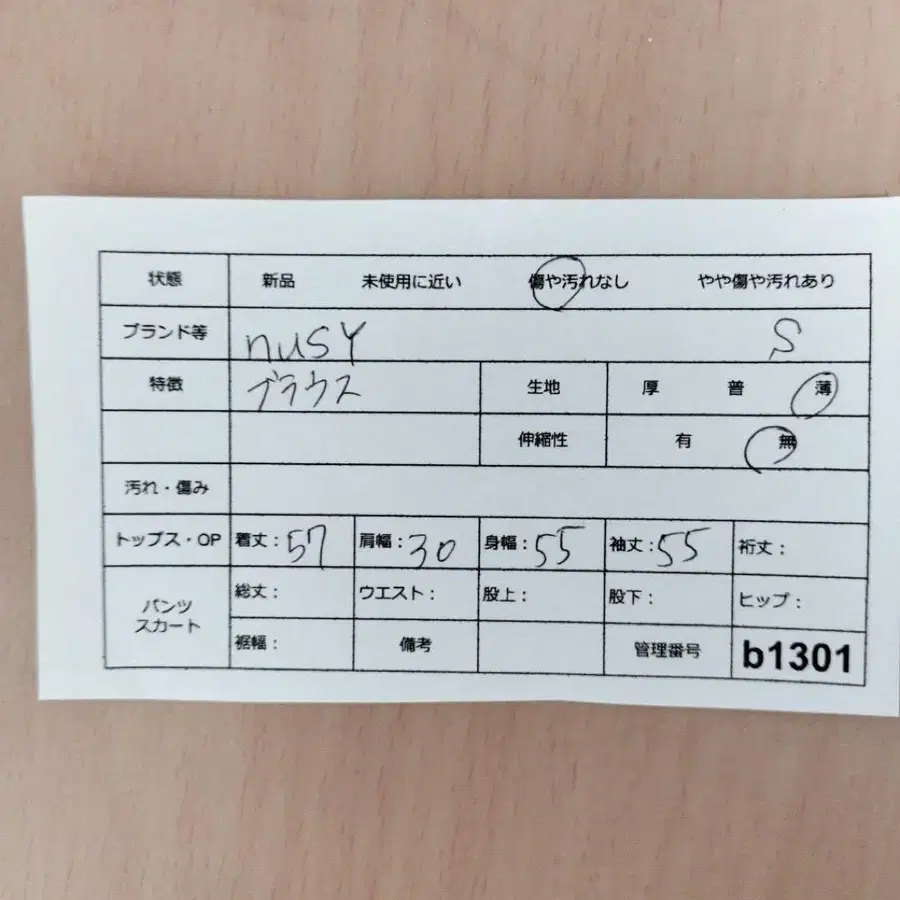 状態 新品 未使用に近い 傷や汚れなし やや傷や汚れあり
ブランド等 nusy S
特徴 ブラウス 生地 厚 普 薄
伸縮性 有 無
汚れ・傷み
トップス・OP 着丈：57 肩幅：30 身幅：55 袖丈：55 裄丈：
パンツ スカート 総丈： ウエスト： 股上： 股下： ヒップ：
裾幅： 備考 管理番号 b1301